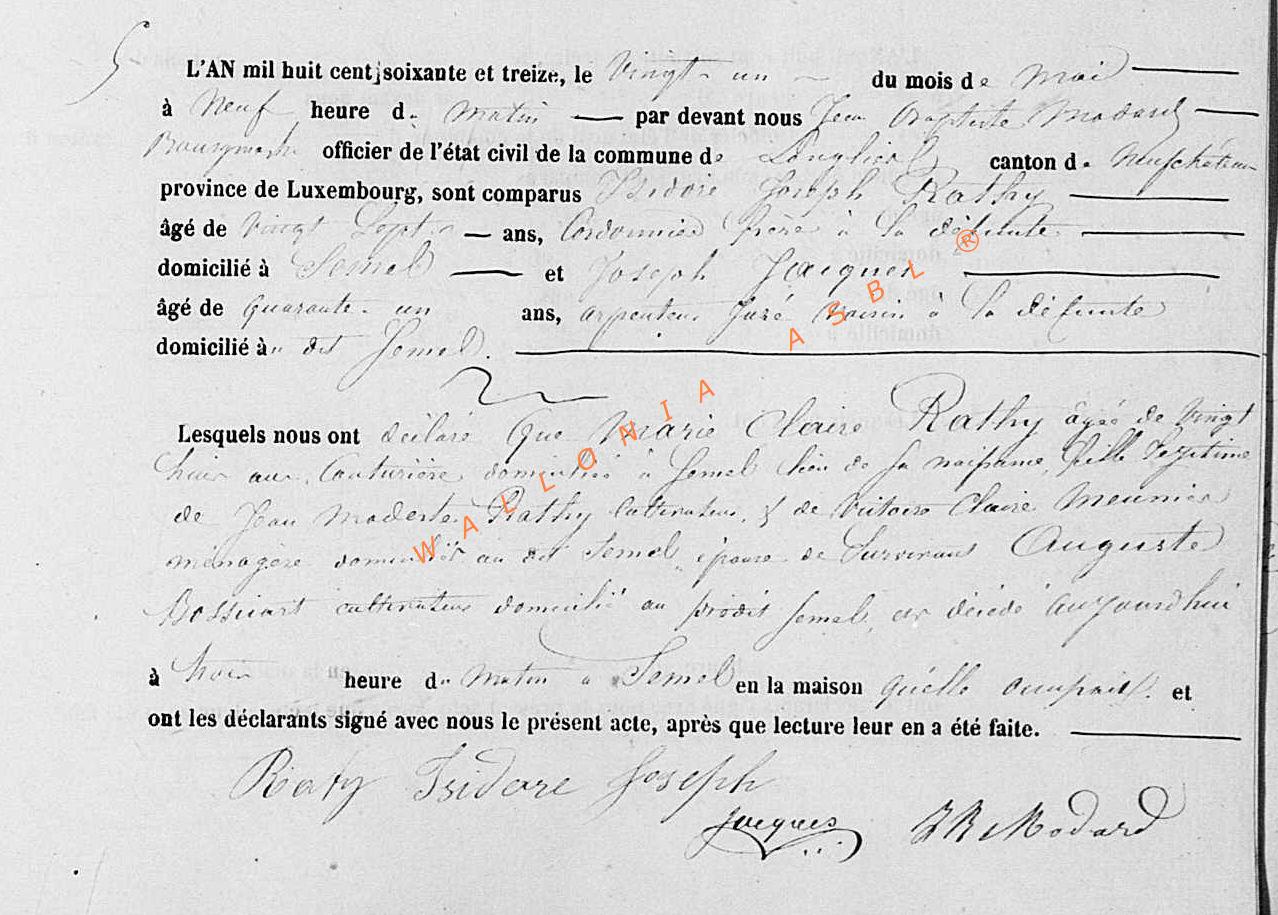 5
L'AN mil huit cent soixante et treize, le Vingt-un du mois de Mai
à Neuf heure du Matin par devant nous Jean Baptiste Modard
Bourgmestre officier de l'état civil de la commune de Longlier canton de Neufchâteau
province de Luxembourg, sont comparus Isidore Joseph Rathy
âgé de Vingt Sept ans, Cordonnier frère à la défunte
domicilié à Semel et Joseph Jacques
âgé de quarante-un ans, arpenteur Juré voisin à la défunte
domicilié à dit Semel.
Lesquels nous ont déclaré Que Marie Claire Rathy âgée de Vingt
huit ans, Couturière domiciliée à Semel lieu de sa naissance, fille légitime
de Jean Modeste Rathy Cultivateur, & de Victoire Claire Meunier
ménagère domiciliés au dit Semel, épouse de Survivant Auguste
Bossicart cultivateur domicilié au prédit Semel, est décédé aujourd'hui
à trois heure du Matin à Semel en la maison qu'elle occupait. et
ont les déclarants signé avec nous le présent acte, après que lecture leur en a été faite.
Raty Isidore Joseph
Jacques JB Modard
WALLONIA ASBL ®